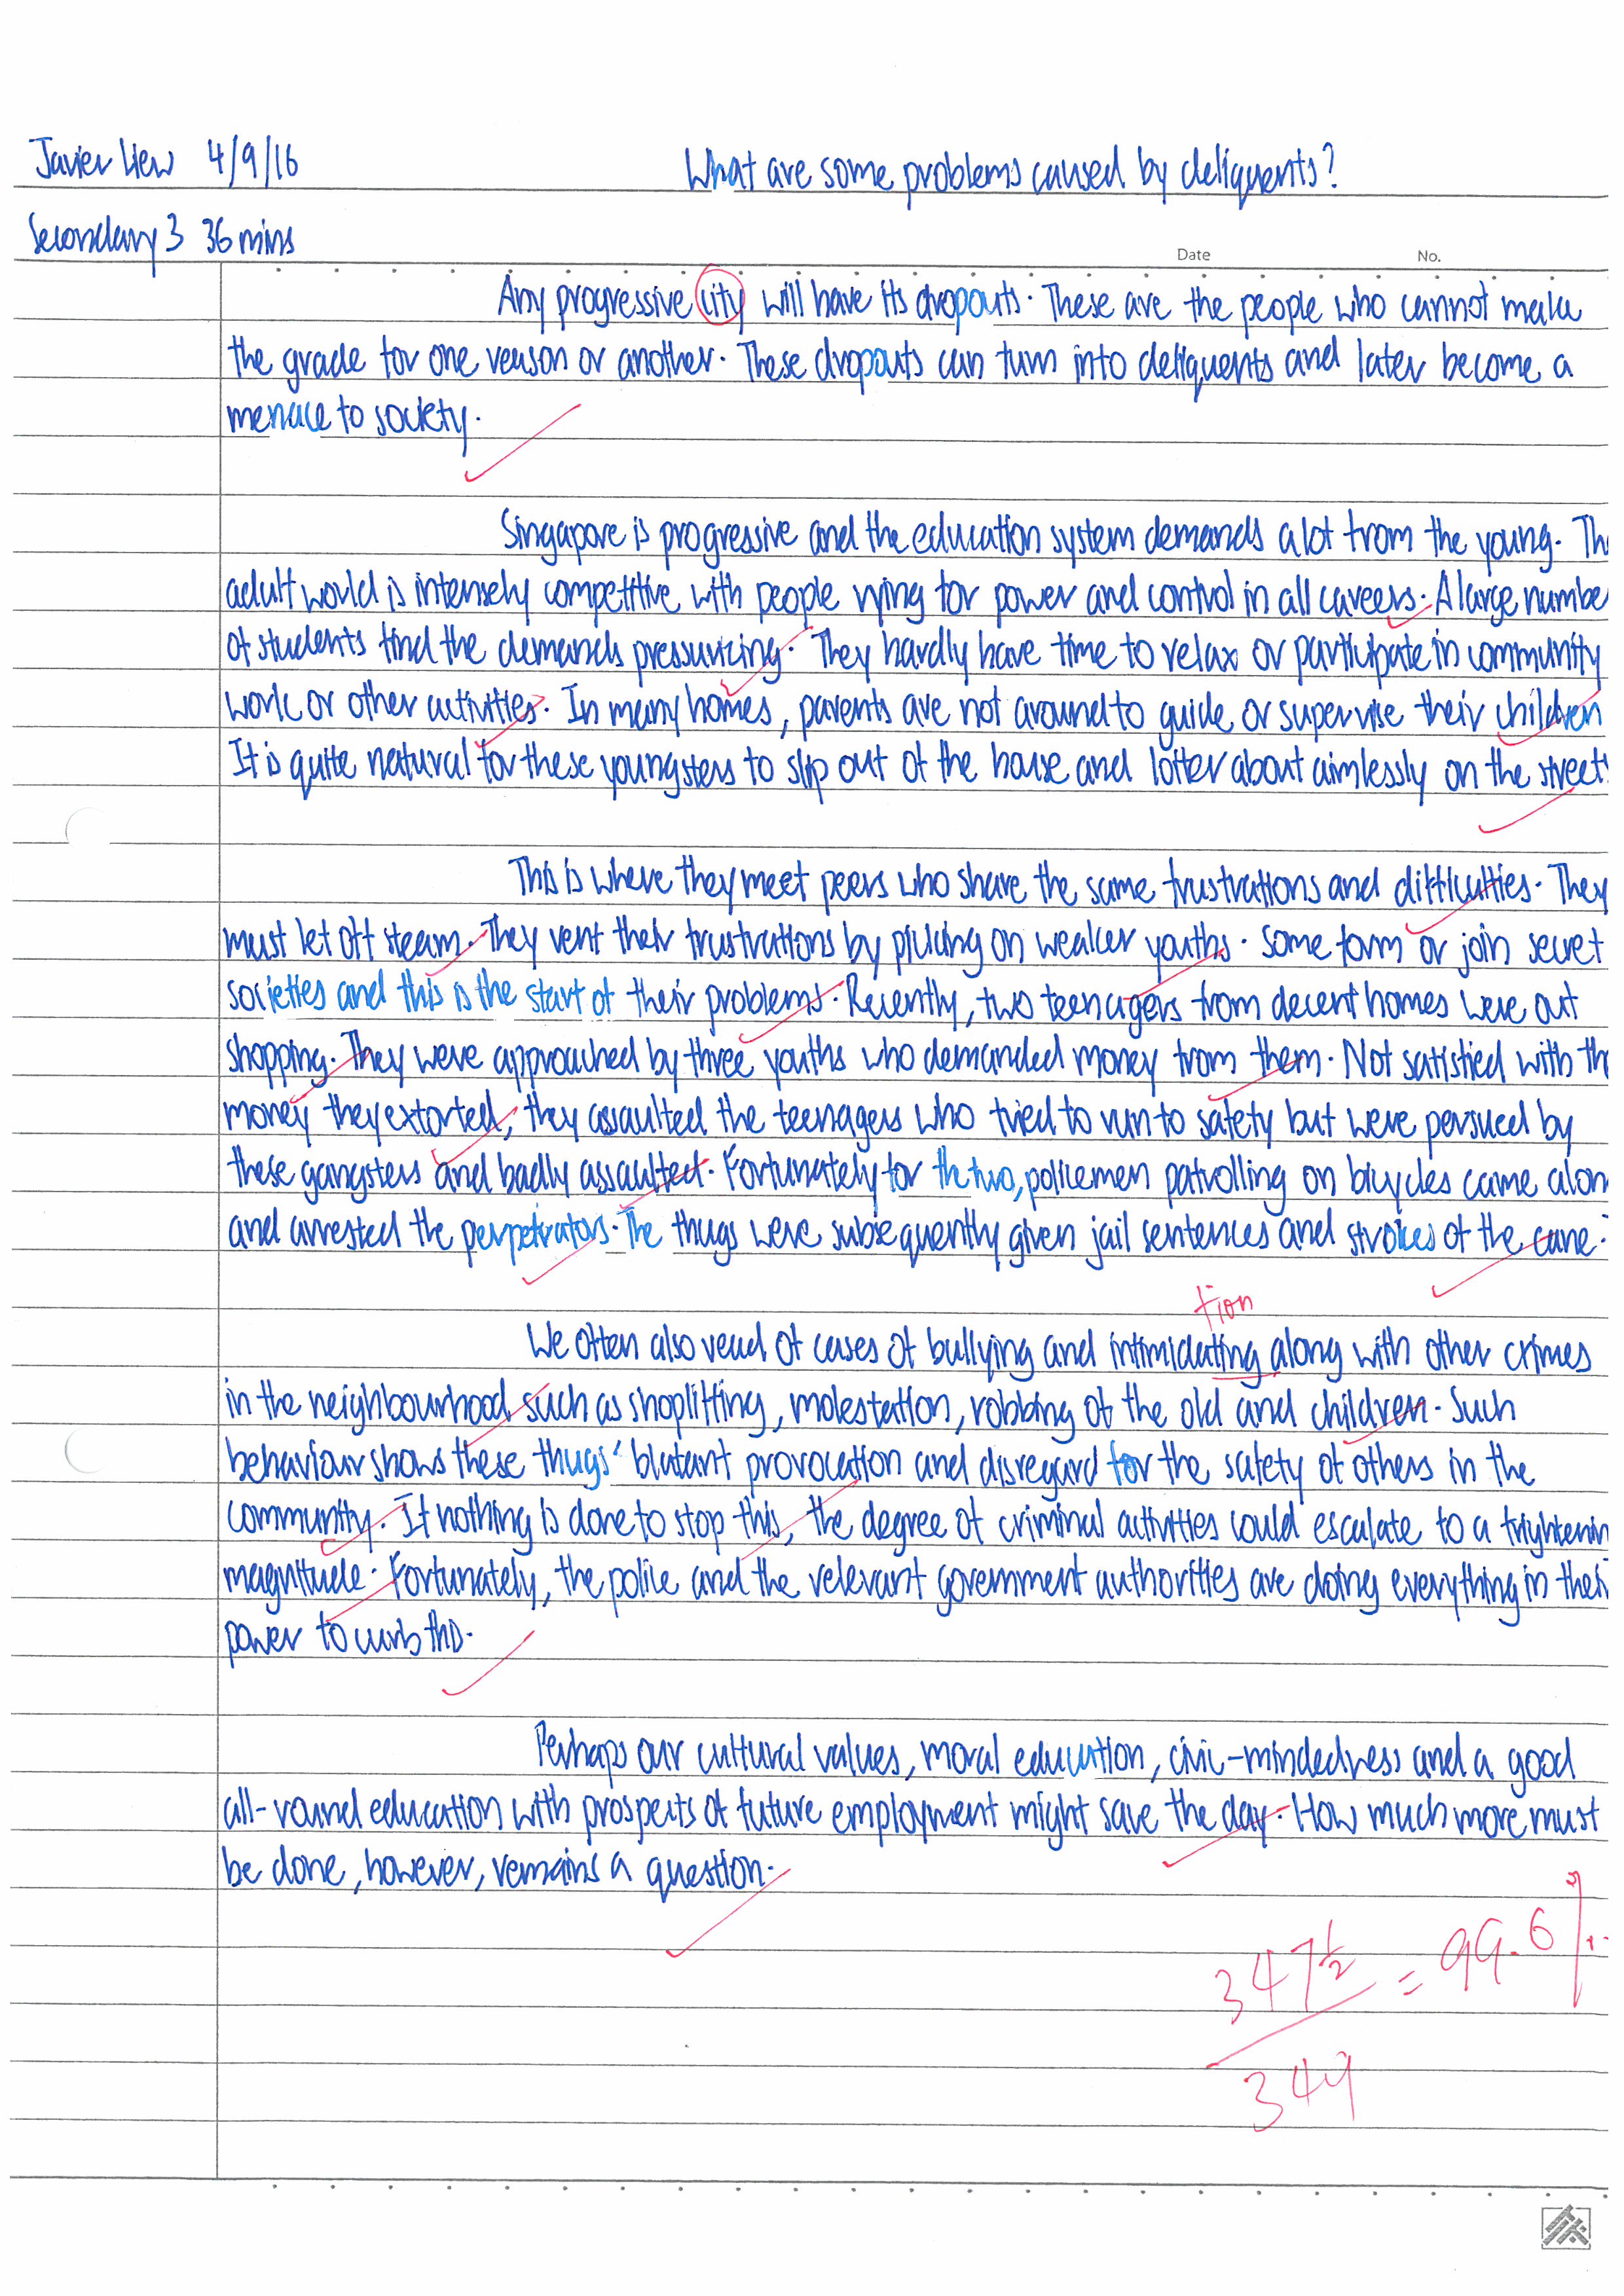 Javier Liew 4/9/16 What are some problems caused by deliquents?
Secondary 3 36 mins
Date No.
Any progressive city will have its dropouts. These are the people who cannot make
the grade for one reason or another. These dropouts can turn into deliquents and later become a
menace to society.
Singapore is progressive and the education system demands a lot from the young. Th
adult world is intensely competitive with people vying for power and control in all careers. A large numbe
of students find the demands pressurizing. They hardly have time to relax or participate in community
work or other activities. In many homes, parents are not around to guide or supervise their children
It is quite natural for these youngsters to slip out of the house and loiter about aimlessly on the streets
This is where they meet peers who share the same frustrations and difficulties. They
must let off steam. They vent their frustrations by picking on weaker youths. Some form or join secret
societies and this is the start of their problems. Recently, two teenagers from decent homes were out
shopping. They were approached by three youths who demanded money from them. Not satisfied with th
money they extorted, they assaulted the teenagers who tried to run to safety but were persued by
these gangsters and badly assaulted. Fortunately for the two, policemen patrolling on bicycles came alon
and arrested the perpetrators. The thugs were subsequently given jail sentences and strokes of the cane.
tion
We often also read of cases of bullying and intimidating along with other crimes
in the neighbourhood such as shoplifting, molestation, robbing of the old and children. Such
behaviour shows these thugs' blatant provocation and disregard for the safety of others in the
community. If nothing is done to stop this, the degree of criminal activities could escalate to a frightenin
magnitude. Fortunately, the police and the relevant government authorities are doing everything in their
power to curb this.
Perhaps our cultural values, moral education, civic-mindedness and a good
all-round education with prospects of future employment might save the day. How much more must
be done, however, remains a question.
347½ = 99.6%
349